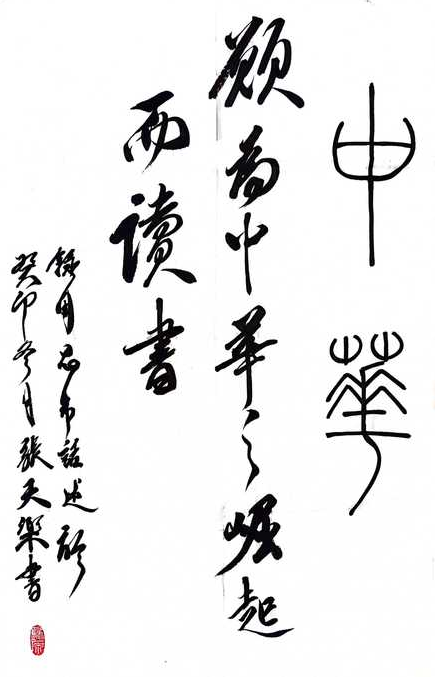 中華
願為中華之崛起
而讀書
錄周 話述
癸卯冬月張天樂書